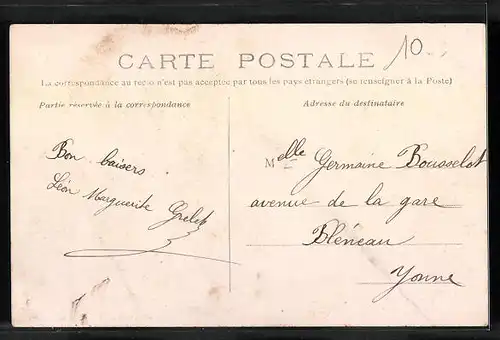 10
CARTE POSTALE
La correspondance au recto n'est pas acceptée par tous les pays étrangers (se renseigner à la Poste)
Partie réservée à la correspondance
Adresse du destinataire
Bon baisers
Léon Marguerite Grelet
Melle Germaine Bousselot
avenue de la gare
Bléneau
Yonne